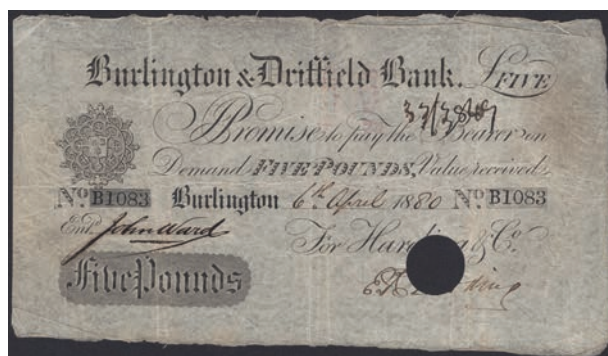 Burlington & Driffield Bank. £FIVE
I Promise to pay the Bearer on
Demand FIVE POUNDS, Value received.
No. B1083 Burlington 6th April 1880 No. B1083
Entd. John Ward For Harding & Co.
Five Pounds